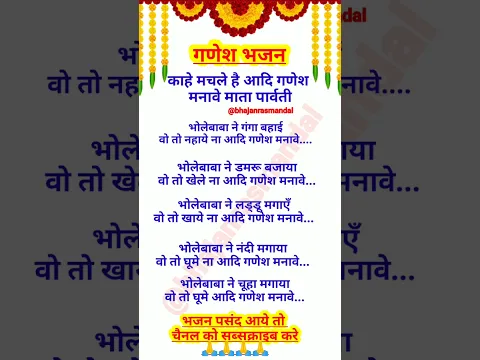 गणेश भजन
काहे मचले है आदि गणेश
मनावे माता पार्वती
@bhajanrasmandal
भोलेबाबा ने गंगा बहाई
वो तो नहाये ना आदि गणेश मनावे....
भोलेबाबा ने डमरू बजाया
वो तो खेले ना आदि गणेश मनावे...
भोलेबाबा ने लड्डू मगाएँ
वो तो खाये ना आदि गणेश मनावे...
भोलेबाबा ने नंदी मगाया
वो तो घूमे ना आदि गणेश मनावे...
भोलेबाबा ने चूहा मगाया
वो तो घूमे आदि गणेश मनावे...
भजन पसंद आये तो
चैनल को सब्सक्राइब करे
@bhajanrasmandal